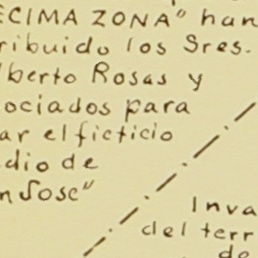 ECIMA ZONA" han
ribuido los Sres.
lberto Rosas y
ociados para
ar el ficticio
dio de
n Jose"
Inva
del terr
de